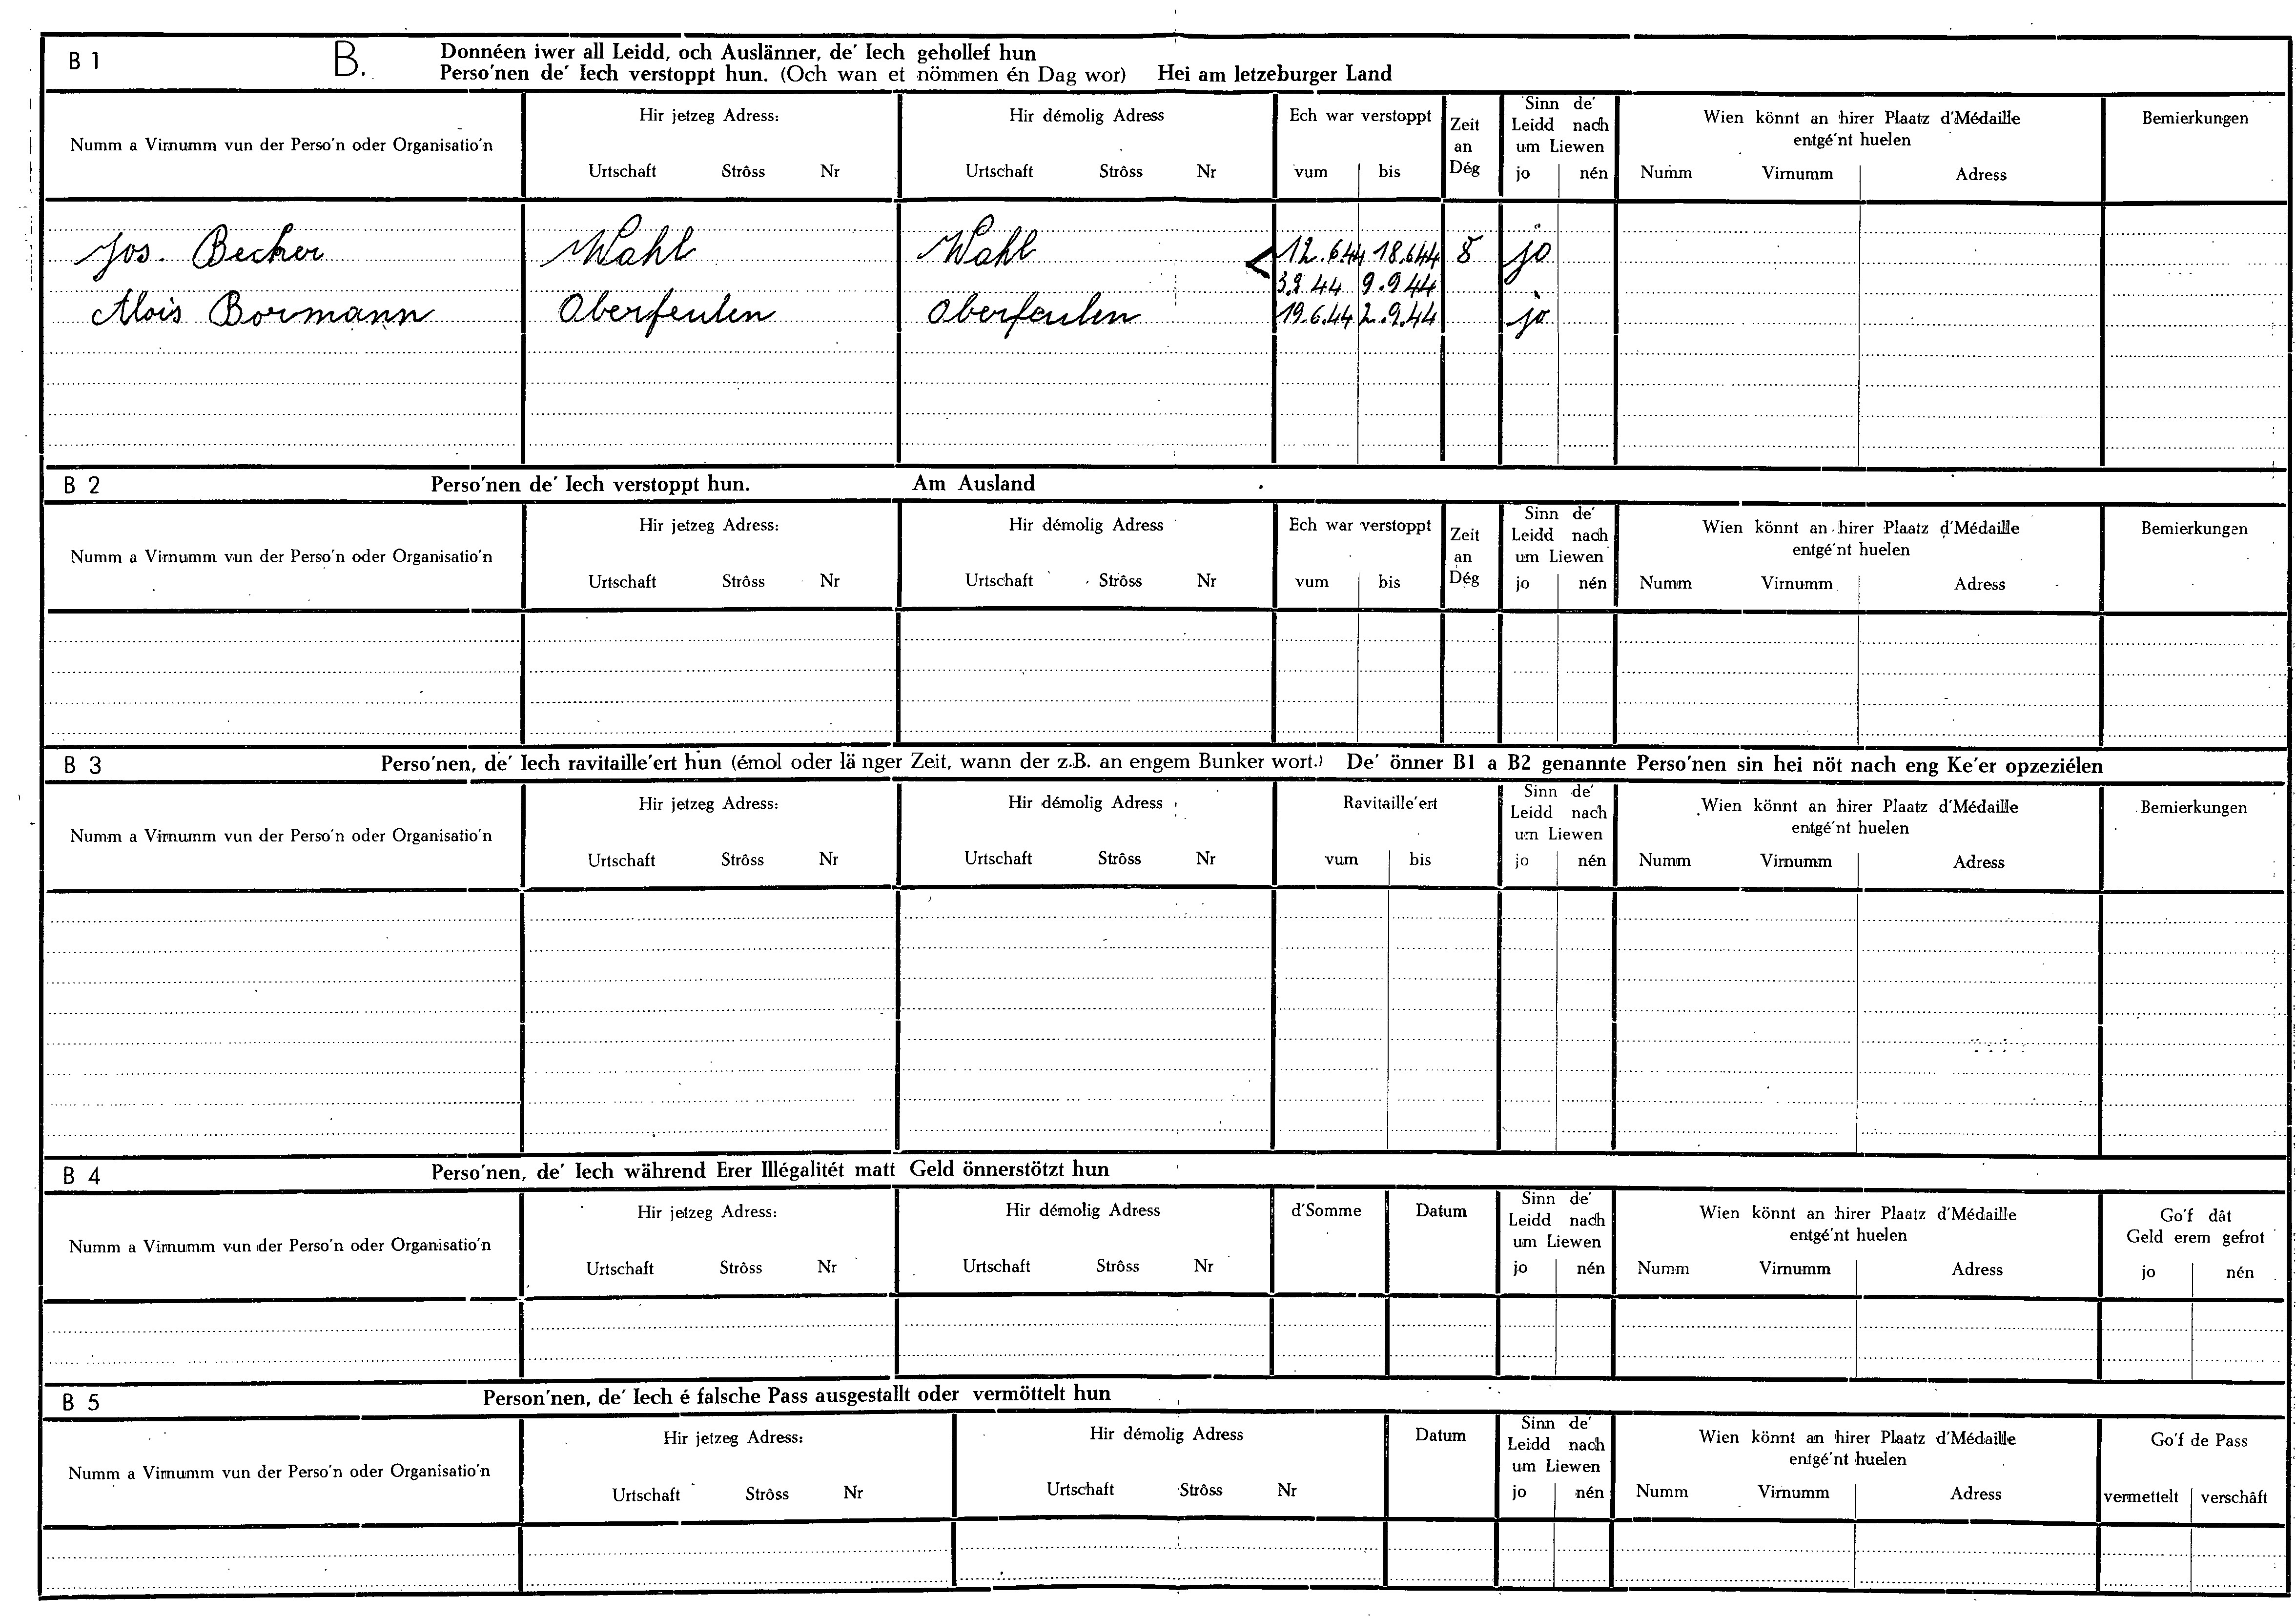 B 1 B. Donnéen iwer all Leidd, och Auslänner, de' Iech gehollef hun
Perso'nen de' Iech verstoppt hun. (Och wan et nömmen én Dag wor) Hei am letzeburger Land
Numm a Virnumm vun der Perso'n oder Organisatio'n
Hir jetzeg Adress:
Urtschaft Strôss Nr
Hir démolig Adress
Urtschaft Strôss Nr
Ech war verstoppt
vum bis
Zeit
an
Dég
Sinn de'
Leidd nach
um Liewen
jo nén
Wien könnt an hirer Plaatz d'Médaille
entgé'nt huelen
Numm Virnumm Adress
Bemierkungen
Jos. Becker Wahl Wahl < 12.6.44 18.6.44 8 jo
3.9 44 9.9 44
Alois Bormann Oberfeulen Oberfeulen 19.6.44 2.9.44 jo
B 2 Perso'nen de' Iech verstoppt hun. Am Ausland
Numm a Virnumm vun der Perso'n oder Organisatio'n
Hir jetzeg Adress:
Urtschaft Strôss Nr
Hir démolig Adress
Urtschaft Strôss Nr
Ech war verstoppt
vum bis
Zeit
an
Dég
Sinn de'
Leidd nach
um Liewen
jo nén
Wien könnt an hirer Plaatz d'Médaille
entgé'nt huelen
Numm Virnumm Adress
Bemierkungen
B 3 Perso'nen, de' Iech ravitaille'ert hun (émol oder länger Zeit, wann der z.B. an engem Bunker wort.) De' önner B1 a B2 genannte Perso'nen sin hei nöt nach eng Ke'er opzeziélen
Numm a Virnumm vun der Perso'n oder Organisatio'n
Hir jetzeg Adress:
Urtschaft Strôss Nr
Hir démolig Adress
Urtschaft Strôss Nr
Ravitaille'ert
vum bis
Sinn de'
Leidd nach
um Liewen
jo nén
Wien könnt an hirer Plaatz d'Médaille
entgé'nt huelen
Numm Virnumm Adress
Bemierkungen
B 4 Perso'nen, de' Iech während Erer Illégalitét matt Geld önnerstötzt hun
Numm a Virnumm vun der Perso'n oder Organisatio'n
Hir jetzeg Adress:
Urtschaft Strôss Nr
Hir démolig Adress
Urtschaft Strôss Nr
d'Somme
Datum
Sinn de'
Leidd nach
um Liewen
jo nén
Wien könnt an hirer Plaatz d'Médaille
entgé'nt huelen
Numm Virnumm Adress
Go'f dât
Geld erem gefrot
jo nén
B 5 Person'nen, de' Iech é falsche Pass ausgestallt oder vermöttelt hun
Numm a Virnumm vun der Perso'n oder Organisatio'n
Hir jetzeg Adress:
Urtschaft Strôss Nr
Hir démolig Adress
Urtschaft Strôss Nr
Datum
Sinn de'
Leidd nach
um Liewen
jo nén
Wien könnt an hirer Plaatz d'Médaille
entgé'nt huelen
Numm Virnumm Adress
Go'f de Pass
vermettelt verschâft